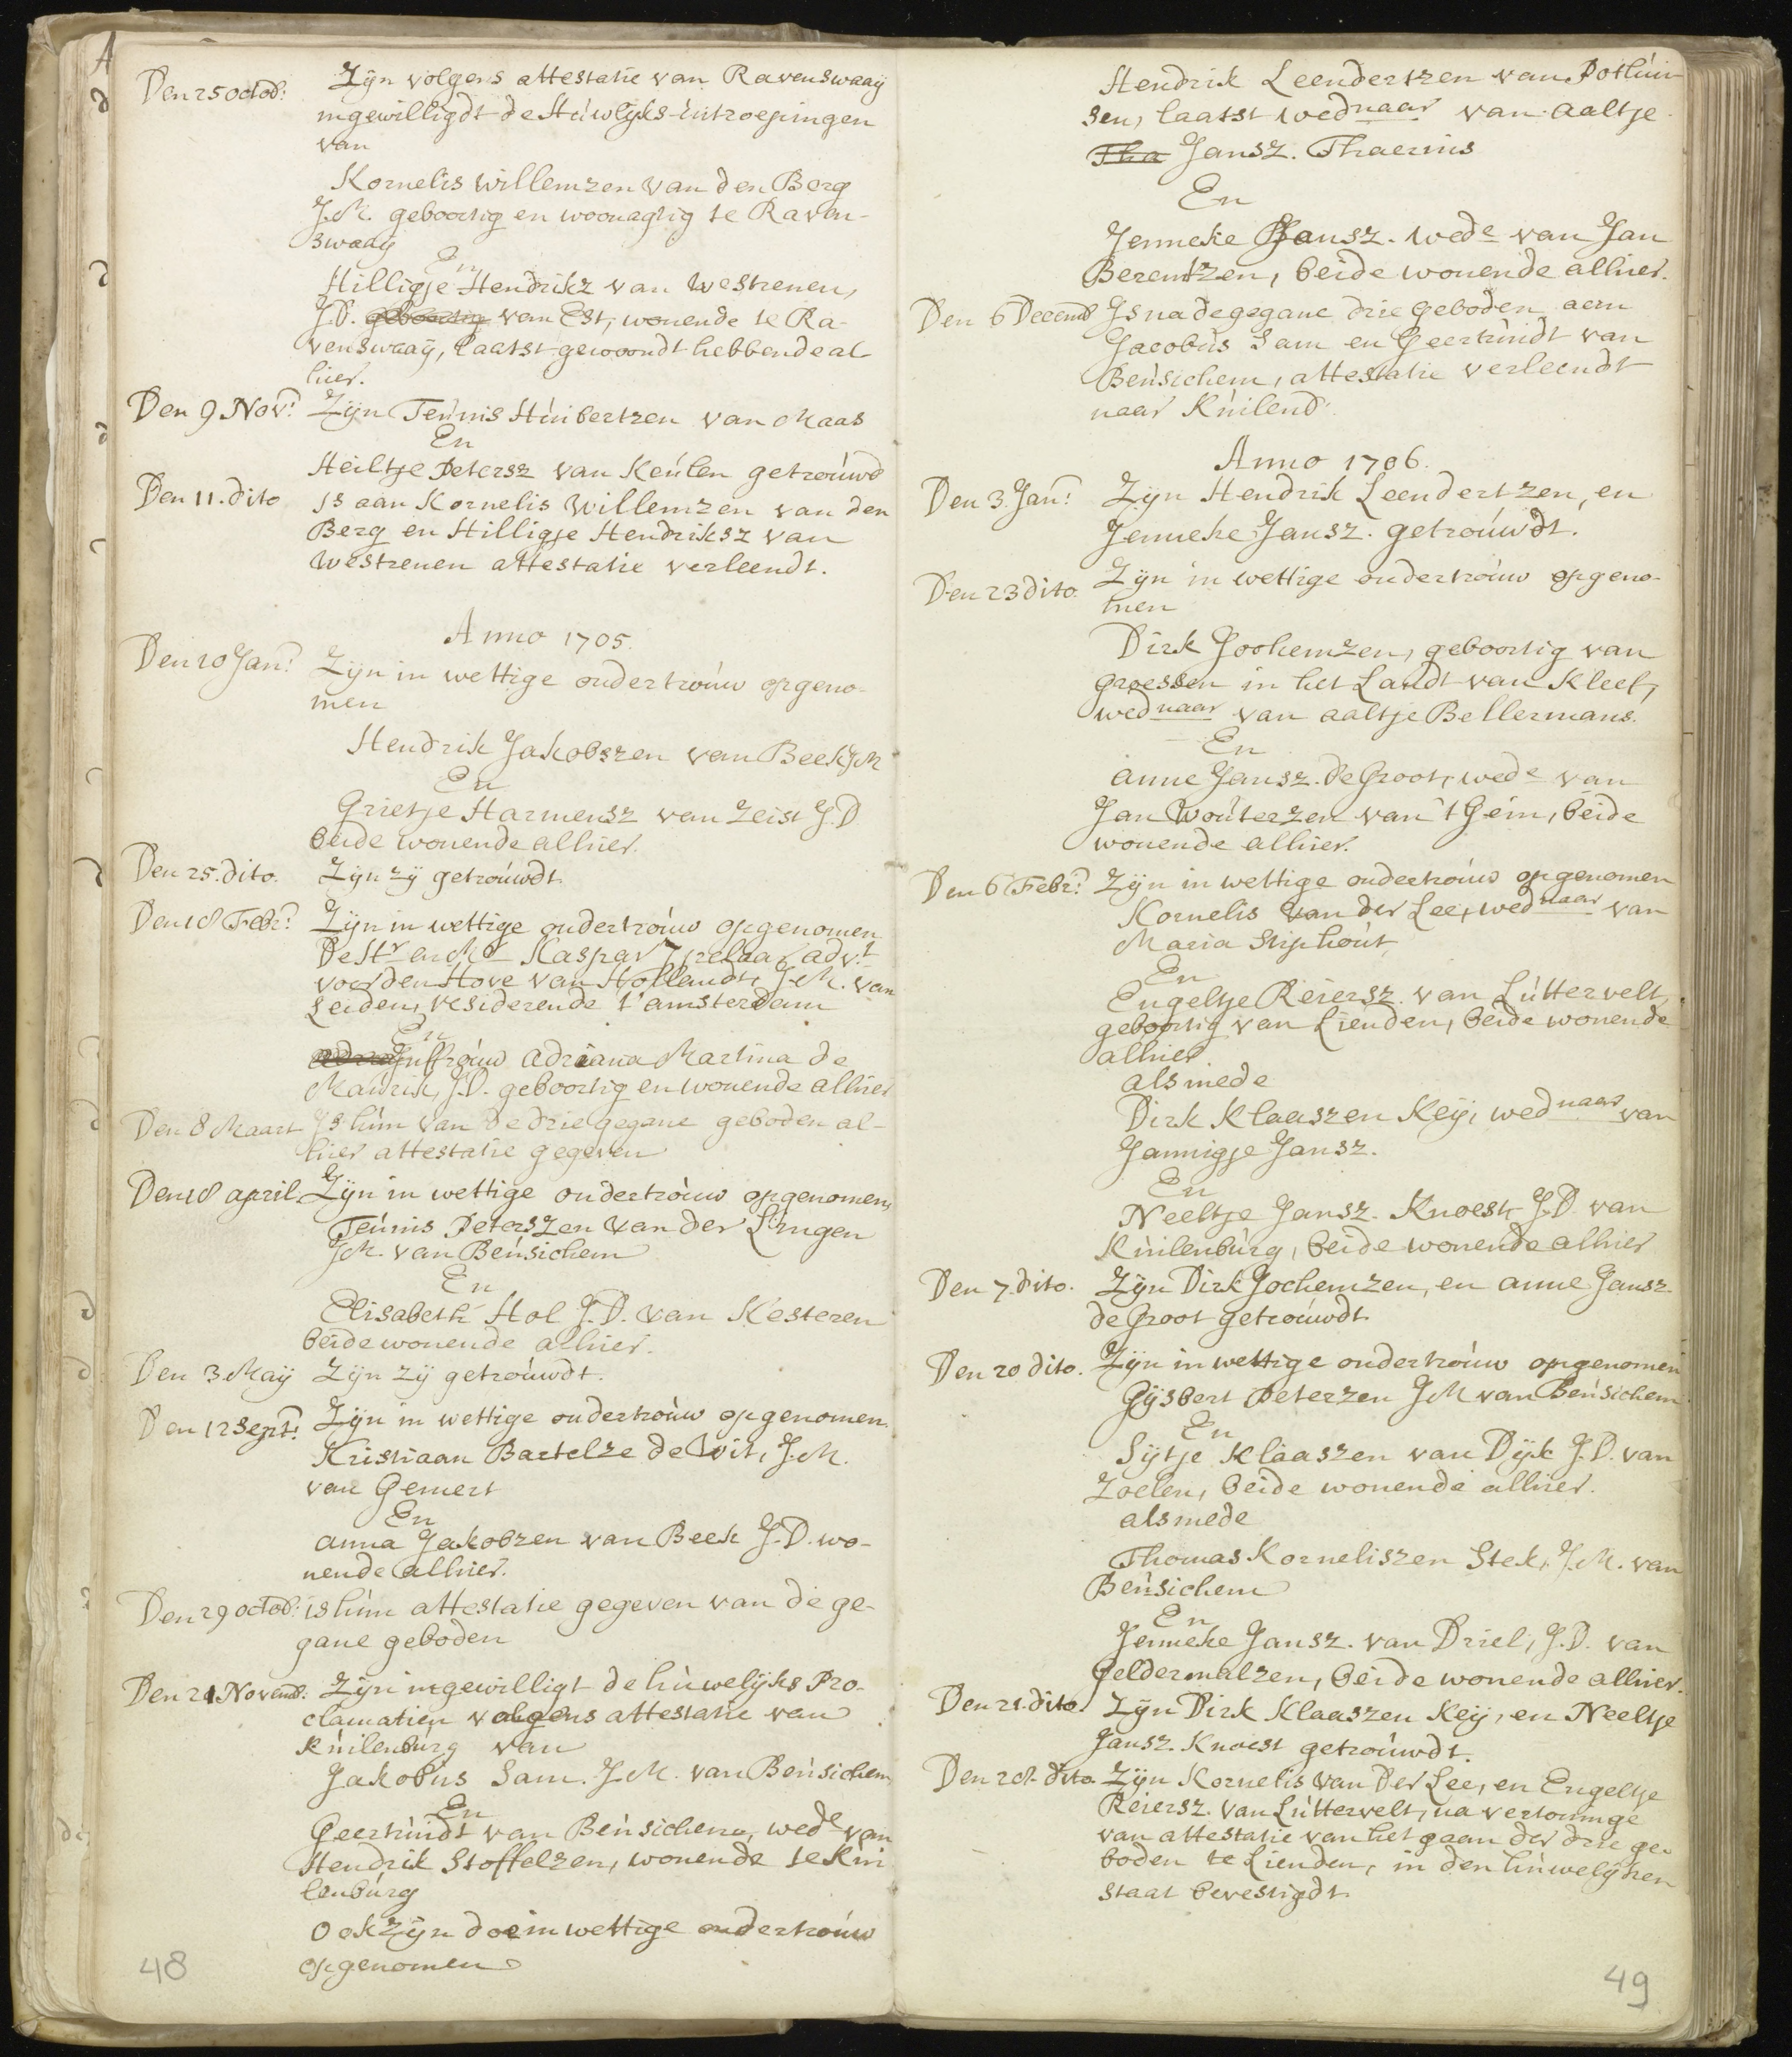 Den 25 octob: Zijn volgens attestatie van Ravenswaaij
ingewilligdt de Húwlijks-úitroepingen
van
Kornelis Willemzen van den Berg
J.M. geboortig en woonagtig te Raven-
swaaij
En
Hilligje Hendrikz van Westrenen,
J.D. geboortig van Est, wonende te Ra-
venswaaij, laatst gewoondt hebbende al-
hier.
Den 9 Nov: Zijn Teúnis Húibertzen van Maas
En
Heiltje Petersz van Keúlen getroúwd
Den 11. dito Is aan Kornelis Willemzen van den
Berg en Hilligje Hendriksz van
Westrenen attestatie verleendt.
Anno 1705.
Den 10 Jan: Zijn in wettige ondertroúw opgeno-
men
Hendrik Jakobszen van Beek JM
En
Grietje Harmensz van Zeist J.D
beide wonende alhier.
Den 25. dito. Zijn zij getroúwdt.
Den 18 Febr: Zijn in wettige ondertroúw opgenomen
De Hr en Mr Kaspar Ypelaar advt
voor den Hove van Hollandt, J.M. van
Leiden, residerende t'amsterdam
En
Juffroúw Adriana Martina de
Maúrik, J.D. geboortig en wonende alhier
Den 8 Maart Is húm van de drie gegane geboden al-
hier attestatie gegeven
Den 18 april Zijn in wettige ondertroúw opgenomen,
Teúnis Peterszen van der Lingen
JM. van Beúsichem
En
Elisabeth Hol J.D. van Kesteren
beide wonende alhier.
Den 3. Maij Zijn zij getroúwdt.
Den 12 Sept: Zijn in wettige ondertroúw opgenomen
Kristiaan Bartelze de Wit, J.M.
van Gemert
En
anna Jakobzen van Beek J.D. wo-
nende alhier.
Den 29 octob: is húm attestatie gegeven van de ge-
gane geboden
Den 21 Novemb: Zijn ingewilligt de húwelijks Pro-
clamatien volgens attestatie van
Kúilenbúrg van
Jakobús Sam. J.M. van Beúsichem
En
Geertrúidt van Beúsichem, wede van
Hendrik Stoffelzen, wonende te Kúi
lenbúrg
Ook zijn doe in wettige ondertroúw
opgenomen
48
Hendrik Leendertzen van Pothúi-
sen, laatst wednaar van aaltje
Tha Jansz. Thaerius
En
Jenneke Jansz. wede van Jan
Berentzen, beide wonende alhier.
Den 6 Decemb Is na de gegane drie geboden aan
Jacobús Sam en Geertrúidt van
Beúsichem, attestatie verleendt
naar Kúilenb:
Anno 1706.
Den 3. Jan: Zijn Hendrik Leendertzen, en
Jenneke Jansz. getroúwdt.
Den 23 dito. Zijn in wettige ondertroúw opgeno-
men
Dirk Jochemzen, geboortig van
Groessen in het Landt van Kleef,
wednaar van aaltje Bellermans.
En
anne Jansz. de Groot, wede van
Jan Woúterzen van 't Gein, beide
wonende alhier.
Den 6 Febr: Zijn in wettige ondertroúw opgenomen
Kornelis van der Lee, wednaar van
Maria Stiphoút,
En
Engeltje Reiersz. van Lúttervelt,
geboortig van Lienden, beide wonende
alhier.
alsmede
Dirk Klaaszen Keij, wednaar van
Jannigje Jansz.
En
Neeltje Jansz. Knoest J.D. van
Kúilenbúrg, beide wonende alhier
Den 7. dito. Zijn Dirk Jochemzen, en anne Jansz.
de Groot getroúwdt.
Den 20 dito. Zijn in wettige ondertroúw opgenomen
Gijsbert Peterzen JM van Beúsichem
En
Sijtje Klaaszen van Dijk J.D. van
Zoelen, beide wonende alhier.
alsmede
Thomas Korneliszen Stek, J.M. van
Beúsichem
En
Jenneke Jansz. van Driel, J.D. van
Geldermalzen, beide wonende alhier.
Den 21. dito. Zijn Dirk Klaaszen Keij, en Neeltje
Jansz. Knoest getroúwdt.
Den 28. dito Zijn Kornelis van Der Lee, en Engeltje
Reiersz. van Lúttervelt, na vertoninge
van attestatie van het gaan der drie ge-
boden te Lienden, in den húwelijken
staat bevestigdt.
49